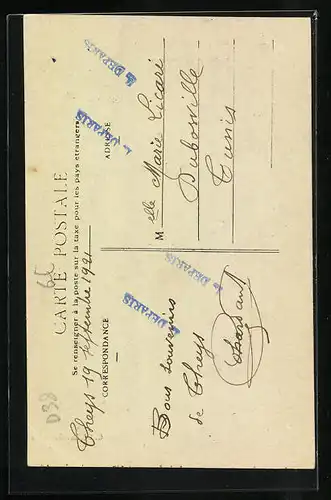 CARTE POSTALE
Se renseigner à la poste sur la taxe pour les pays étrangers
CORRESPONDANCE
ADRESSE
Theys 19 septembre 1921
Bons souvenirs
de Theys
Melle Marie Licari
Dubosville
Tunis
L. DEPARIS
L. DEPARIS
L. DEPARIS
L. DEPARIS
D38